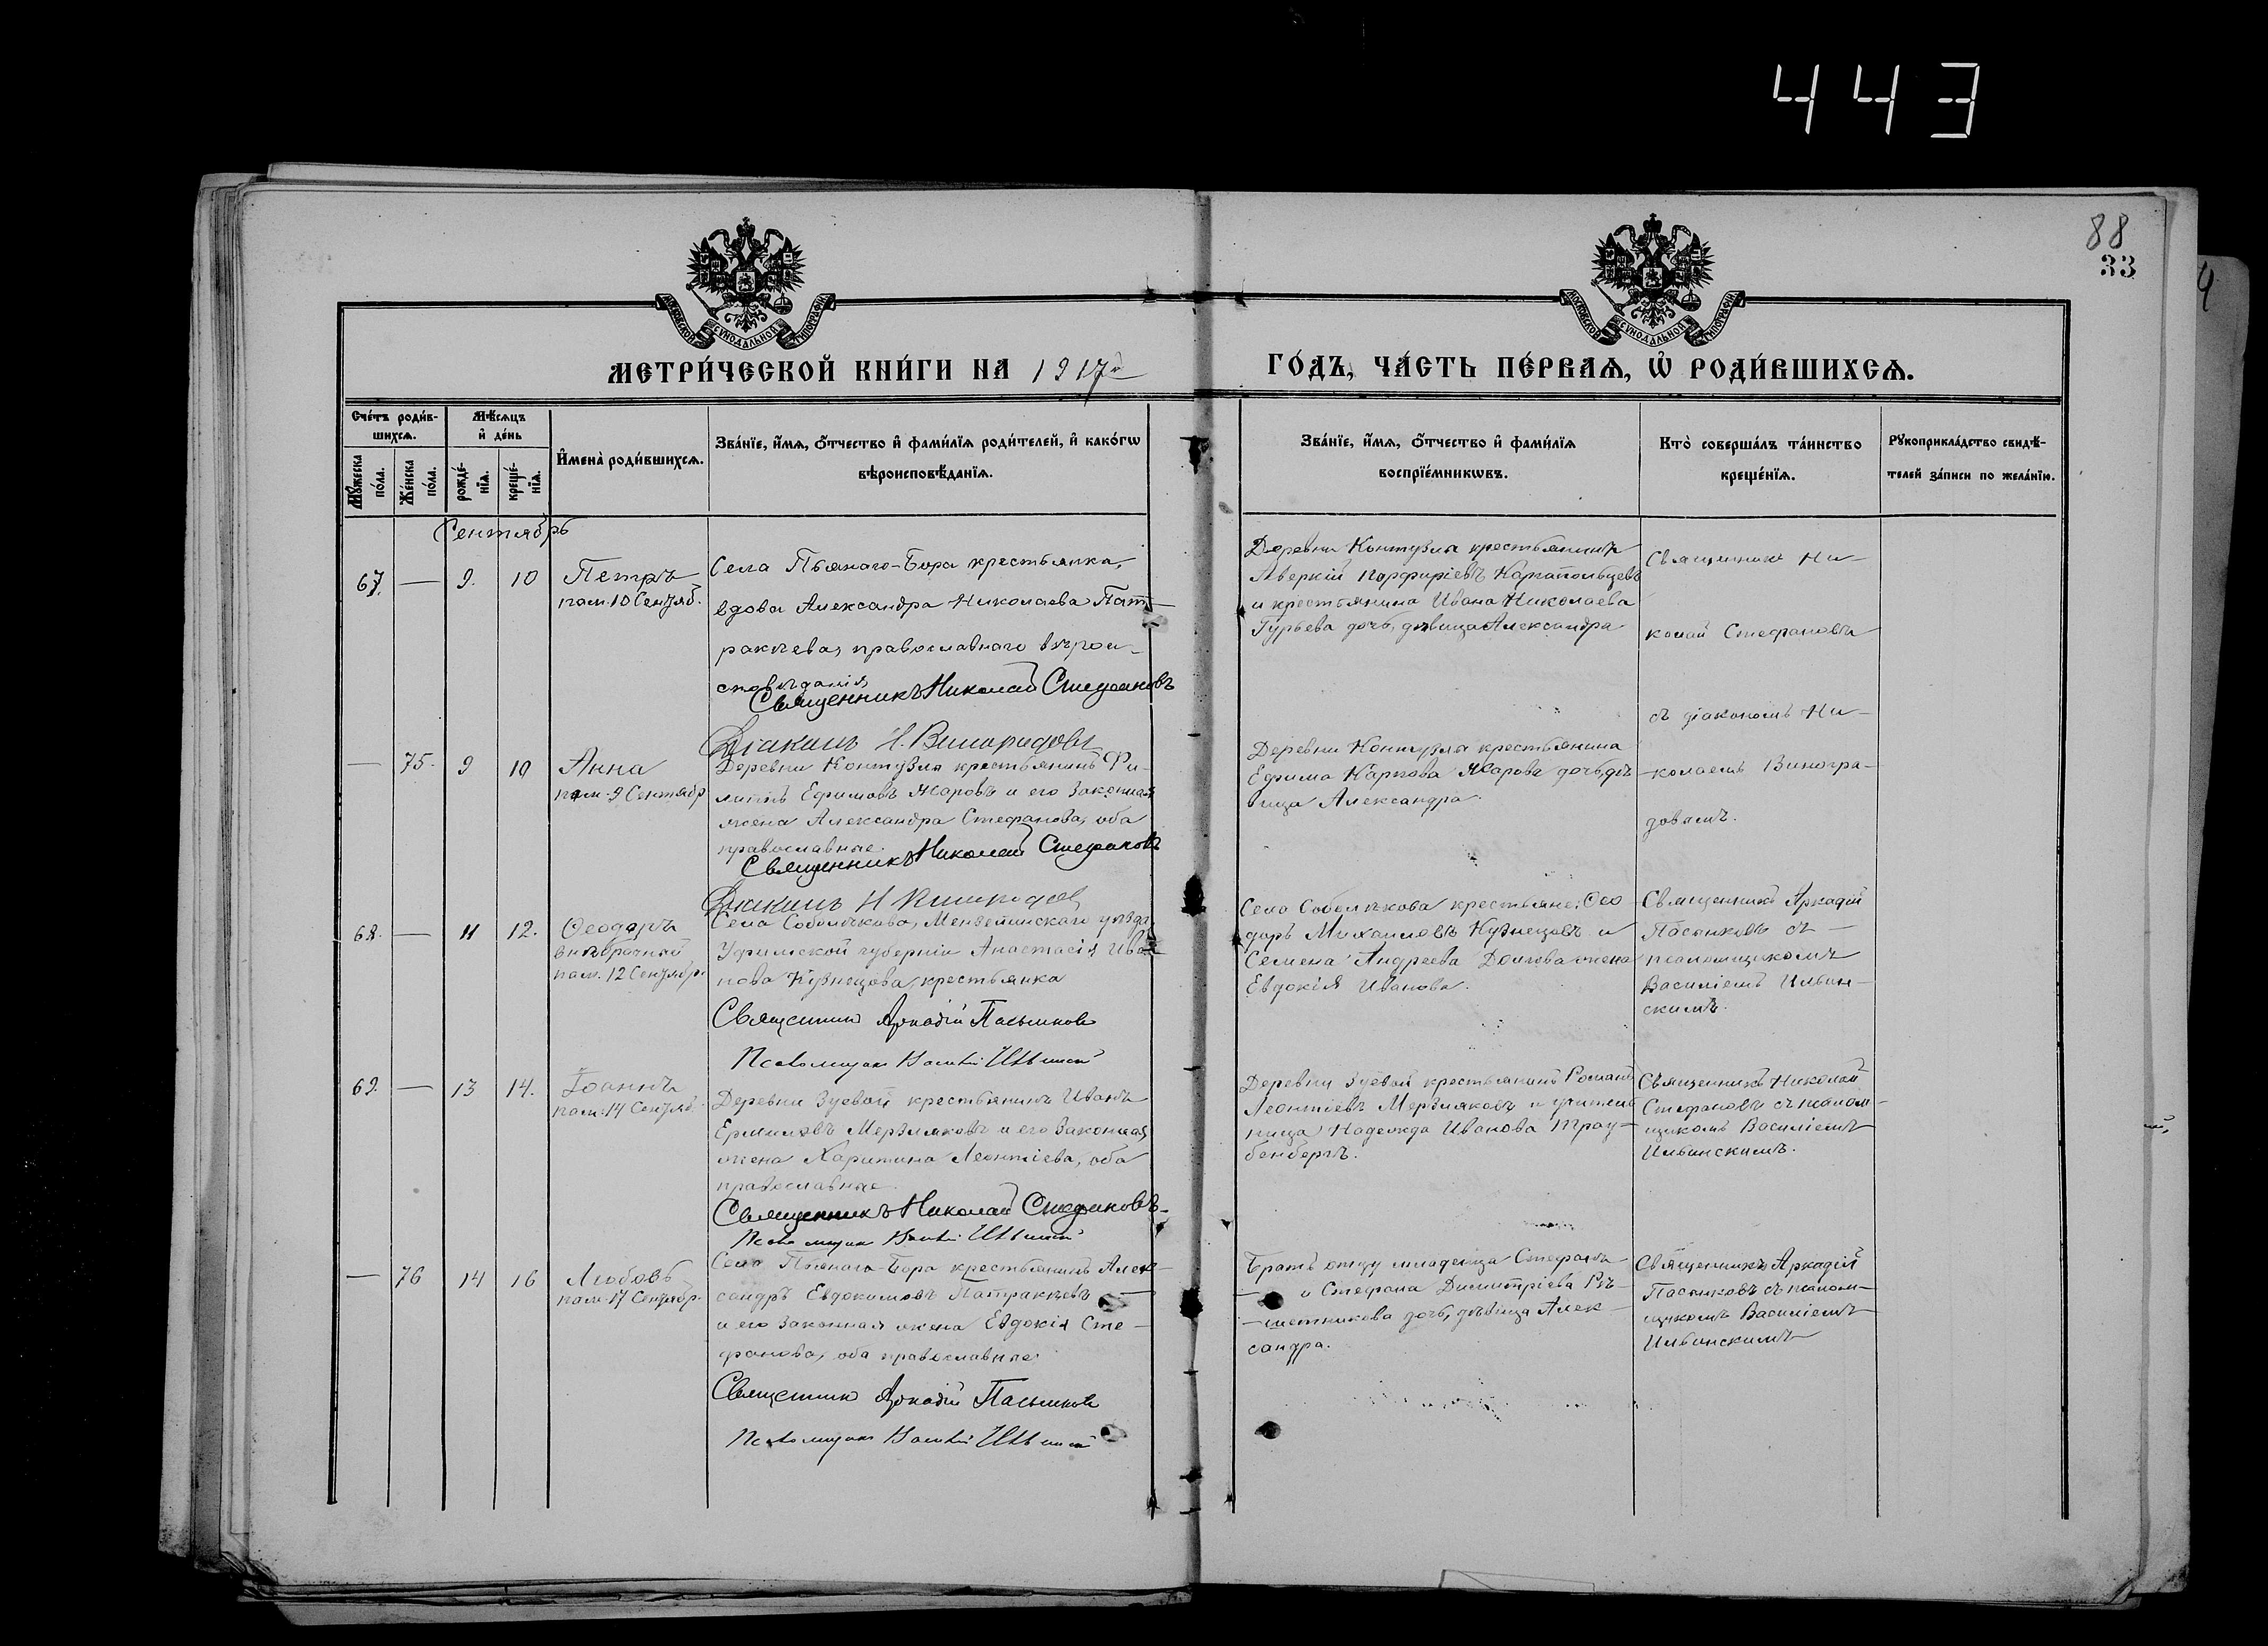 443
88
33
МОСКОВСКОЙ СУНОДАЛЬНОЙ ТИПОГРАФІИ
МОСКОВСКОЙ СУНОДАЛЬНОЙ ТИПОГРАФІИ
МЕТРИ́ЧЕСКОЙ КНИ́ГИ НА 1917й ГО́ДЪ, ЧА́СТЬ ПЕ́РВАѦ, Ѡ҆ РОДИ́ВШИХСѦ.
Сче́тъ роди́в-
шихсѧ.
Мꙋ́жеска
по́ла.
Же́нска
по́ла.
Мѣ́сѧцъ
и҆ де́нь
рожде́-
нїѧ.
креще́-
нїѧ.
И҆мена̀ роди́вшихсѧ.
Зва́нїе, и҆́мѧ, ѻ҆́тчество и҆ фами́лїѧ роди́телей, и҆ како́гѡ
вѣроисповѣ́данїѧ.
Зва́нїе, и҆́мѧ, ѻ҆́тчество и҆ фами́лїѧ
воспрїе́мникѡвъ.
Кто̀ соверша́лъ та́инство
креще́нїѧ.
Рꙋкоприкла́дство свидѣ́-
телей за́писи по жела́нїю.
Сентябрь
67. — 9. 10
Петръ
пам. 10 Сентяб.
Села Пьянаго-Бора крестьянка,
вдова Александра Николаева Пат-
ракѣева, православнаго вѣрои-
сповѣданія
Священникъ Николай Стефановъ
Діаконъ Н. Виноградовъ
Деревни Контузла крестьянинъ
Аверкій Порфиріевъ Каргапольцевъ
и крестьянина Ивана Николаева
Гурьева дочь, дѣвица Александра
Священникъ Ни-
колай Стефановъ
съ діакономъ Ни-
колаемъ Виногра-
довымъ.
— 75. 9 10
Анна
пам. 9 Сентябр
Деревни Контузла крестьянинъ Фи-
липпъ Ефимовъ Жаровъ и его законная
жена Александра Стефанова, оба
православные.
Священникъ Николай Стефановъ
Діаконъ Н. Виноградовъ
Деревни Контузла крестьянина
Ефима Карпова Жарова дочь, дѣ-
вица Александра.
68. — 11 12.
Ѳеодоръ
внѣбрачный
пам. 12 Сентябр.
Села Соболѣкова, Мензелинскаго уѣзда
Уфимской губерніи Анастасія Ива-
нова Кузнецова, крестьянка
Священникъ Аркадій Пасынковъ
Псаломщикъ Василій Ильинскій
Села Соболѣкова крестьяне: Ѳео-
доръ Михаиловъ Кузнецовъ и
Семена Андреева Долгова жена
Евдокія Иванова.
Священникъ Аркадій
Пасынковъ съ —
псаломщикомъ
Василіемъ Ильин-
скимъ.
69. — 13 14.
Іоаннъ
пам. 14 Сентяб.
Деревни Зуевой крестьянинъ Иванъ
Ермиловъ Мерзляковъ и его законная
жена Харитина Леонтіева, оба
православные.
Священникъ Николай Стефановъ
Псаломщикъ Василій Ильинскій
Деревни Зуевой крестьянинъ Романъ
Леонтіевъ Мерзляковъ и учитель-
ница Надежда Иванова Трау-
бенбергъ.
Священникъ Николай
Стефановъ съ псалом-
щикомъ Василіемъ
Ильинскимъ.
— 76 14 16
Любовь
пам. 17 Сентябр.
Села Пьянаго-Бора крестьянинъ Алек-
сандръ Евдокимовъ Патракѣевъ —
и его законная жена Евдокія Сте-
фанова, оба православные.
Священникъ Аркадій Пасынковъ
Псаломщикъ Василій Ильинскій
Братъ отцу младенца Стефанъ
— и Стефана Димитріева Рѣ-
шетникова дочь, дѣвица Алек-
сандра.
Священникъ Аркадій
Пасынковъ съ псалом-
щикомъ Василіемъ
Ильинскимъ